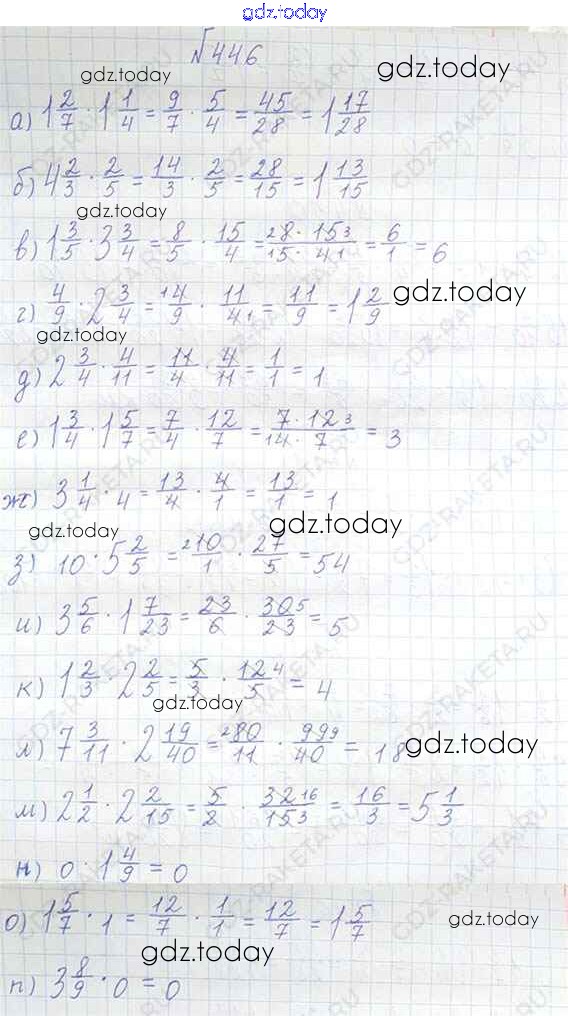 gdz.today
№446
gdz.today gdz.today
а) 1 2/7 · 1 1/4 = 9/7 · 5/4 = 45/28 = 1 17/28
б) 4 2/3 · 2/5 = 14/3 · 2/5 = 28/15 = 1 13/15
gdz.today
в) 1 3/5 · 3 3/4 = 8/5 · 15/4 = 28 · 153/15 · 41 = 6/1 = 6
г) 4/9 · 2 3/4 = 14/9 · 11/41 = 11/9 = 1 2/9 gdz.today
gdz.today
д) 2 3/4 · 4/11 = 11/4 · 4/11 = 1/1 = 1
е) 1 3/4 · 1 5/7 = 7/4 · 12/7 = 7 · 123/14 · 7 = 3
ж) 3 1/4 · 4 = 13/4 · 4/1 = 13/1 = 1
gdz.today gdz.today
з) 10 · 5 2/5 = 210/1 · 27/5 = 54
и) 3 5/6 · 1 7/23 = 23/6 · 305/23 = 5
к) 1 2/3 · 2 2/5 = 5/3 · 124/5 = 4
gdz.today
л) 7 3/11 · 2 19/40 = 280/11 · 999/40 = 18 gdz.today
м) 2 1/2 · 2 2/15 = 5/2 · 3216/153 = 16/3 = 5 1/3
н) 0 · 1 4/9 = 0
о) 1 5/7 · 1 = 12/7 · 1/1 = 12/7 = 1 5/7 gdz.today
gdz.today
п) 3 8/9 · 0 = 0
GDZ-RAKETA.RU